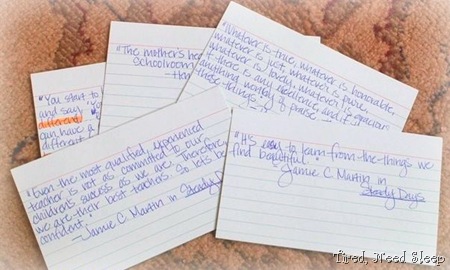 "You start to
and say
different
can have a
different
"The mother's he
schoolroom
"Whatever is true, whatever is honorable,
whatever is just, whatever is pure,
whatever is lovely, whatever is gracious,
if there is any excellence, and if
anything worthy of praise
these things."
"Even the most qualified, experienced
teacher is not as committed to our
children's success as we are. Therefore,
we are their best teachers. So let's be
confident."
-Jamie C. Martin in Steady D
"It's easy to learn from the things we
find beautiful."
-Jamie C. Martin in
Steady Days
Tired, Need Sleep